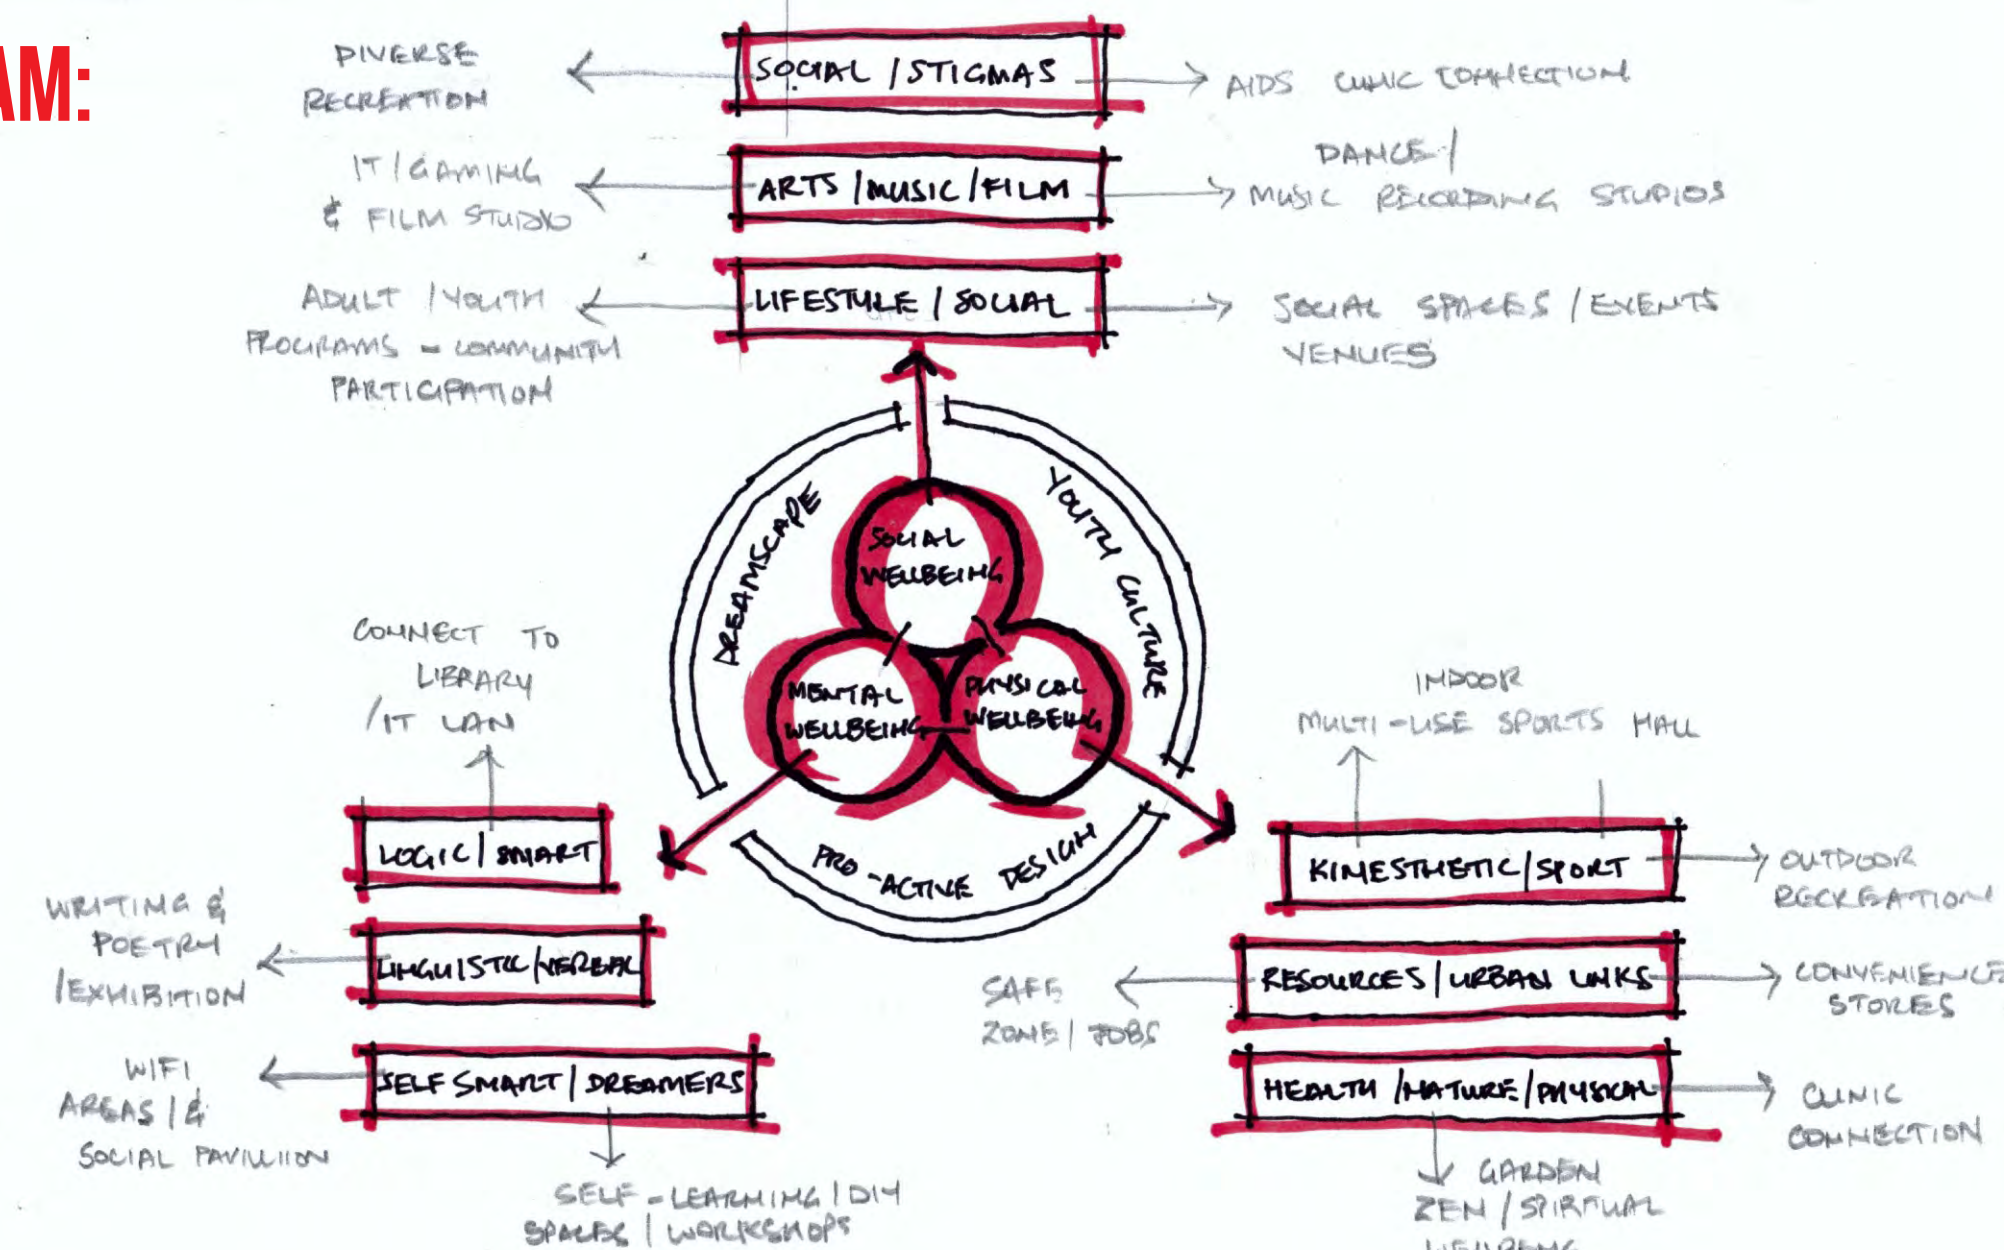 AM:
DIVERSE
RECREATION
SOCIAL / STIGMAS
AIDS CLINIC CONNECTION
IT / GAMING
& FILM STUDIO
ARTS / MUSIC / FILM
DANCE /
MUSIC RECORDING STUDIOS
ADULT / YOUTH
PROGRAMS - COMMUNITY
PARTICIPATION
LIFESTYLE / SOCIAL
SOCIAL SPACES / EVENTS
VENUES
DREAMSCAPE
YOUTH CULTURE
PRO-ACTIVE DESIGN
SOCIAL
WELLBEING
MENTAL
WELLBEING
PHYSICAL
WELLBEING
CONNECT TO
LIBRARY
/ IT LAN
LOGIC / SMART
WRITING &
POETRY
/ EXHIBITION
LINGUISTIC / VERBAL
WIFI
AREAS / &
SOCIAL PAVILLIION
SELF SMART / DREAMERS
SELF-LEARNING / DIY
SPACES / WORKSHOPS
INDOOR
MULTI-USE SPORTS HALL
KINESTHETIC / SPORT
OUTDOOR
RECREATION
SAFE
ZONE / JOBS
RESOURCES / URBAN LINKS
CONVENIENCE
STORES
HEALTH / NATURE / PHYSICAL
CLINIC
CONNECTION
GARDEN
ZEN / SPIRITUAL
WELLBEING